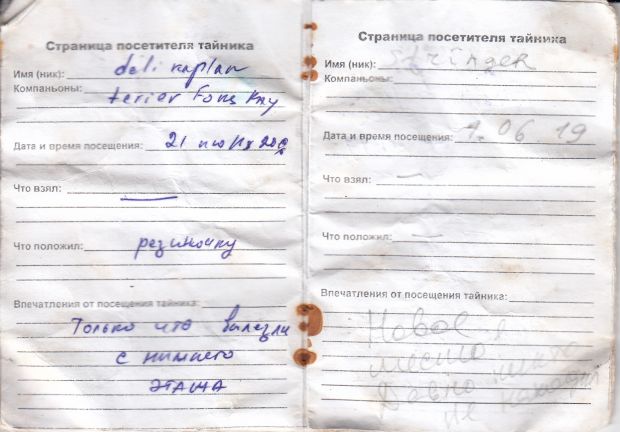 Страница посетителя тайника
Имя (ник): deli kaplan
Компаньоны:
terier Foxy
Дата и время посещения: 21
Что взял: —
Что положил: резиночку
Впечатления от посещения тайника:
Только что вылезли
с нижнего
этажа
Страница посетителя тайника
Имя (ник): Stringer
Компаньоны:
Дата и время посещения: 1.06.19
Что взял: —
Что положил: —
Впечатления от посещения тайника:
Новое
место
Давно никто
не находил